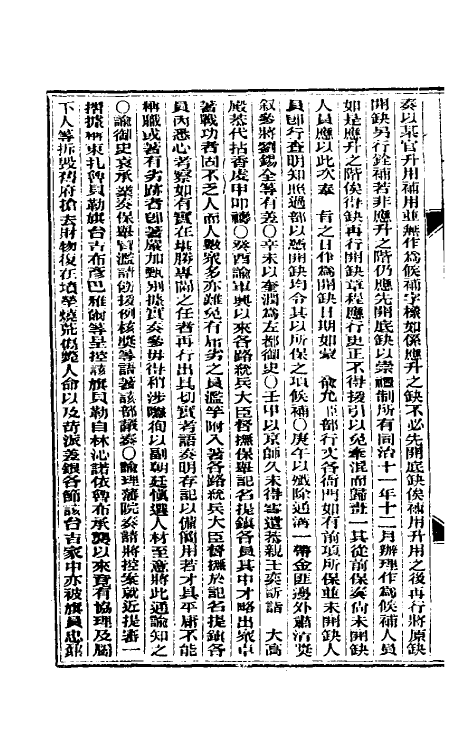 奏以某官升用補用並無作為候補字樣如係應升之缺不必先開底缺俟補用升用之後再行將原缺
開缺另行銓補若非應升之階仍應先開底缺以崇體制所有同治十一年十二月辦理作為候補人員
如是應升之階俟得缺再行開缺章程應行更正不得援引以免牽混而歸畫一其從前保奏尚未開缺
人員應以此次奉　旨之日作為開缺日期如蒙　俞允臣部行文各衙門如有前項所保並未開缺人
員即行查明知照過部以憑開缺均令其以所保之項候補〇庚午以殲除通溝一帶金匪邊外肅清獎
敘參將劉錫全等有差〇辛未以奎潤為左都御史〇壬申以京師久未得雪遣恭親王奕訢詣　大高
殿恭代拈香庚申叩禱〇癸酉諭軍興以來各路統兵大臣督撫保舉記名提鎮各員其中才略出眾卓
著戰功者固不乏人而人數眾多亦難免有庸劣之員濫竽附入著各路統兵大臣督撫於記名提鎮各
員內悉心考察如有實在堪勝專閫之任者再行出具切實考語奏明存記以備簡用若才具平庸不能
稱職或著有劣跡者即著嚴加甄別據實奏參毋得稍涉瞻徇以副朝廷慎選人材至意將此通諭知之
〇諭御史袁承業奏保舉冒濫請飭援例核獎等語著該部議奏〇諭理藩院奏請將控案就近提審一
摺據稱東扎魯貝勒旗台吉布彥巴雅爾等呈控該旗貝勒自林沁諾依魯布承襲以來竟有協理及屬
下人等拆毀舊府搶去財物復在墳塋燒荒傷斃人命以及苛派差銀各節該台吉家中亦被旗員忠鼐